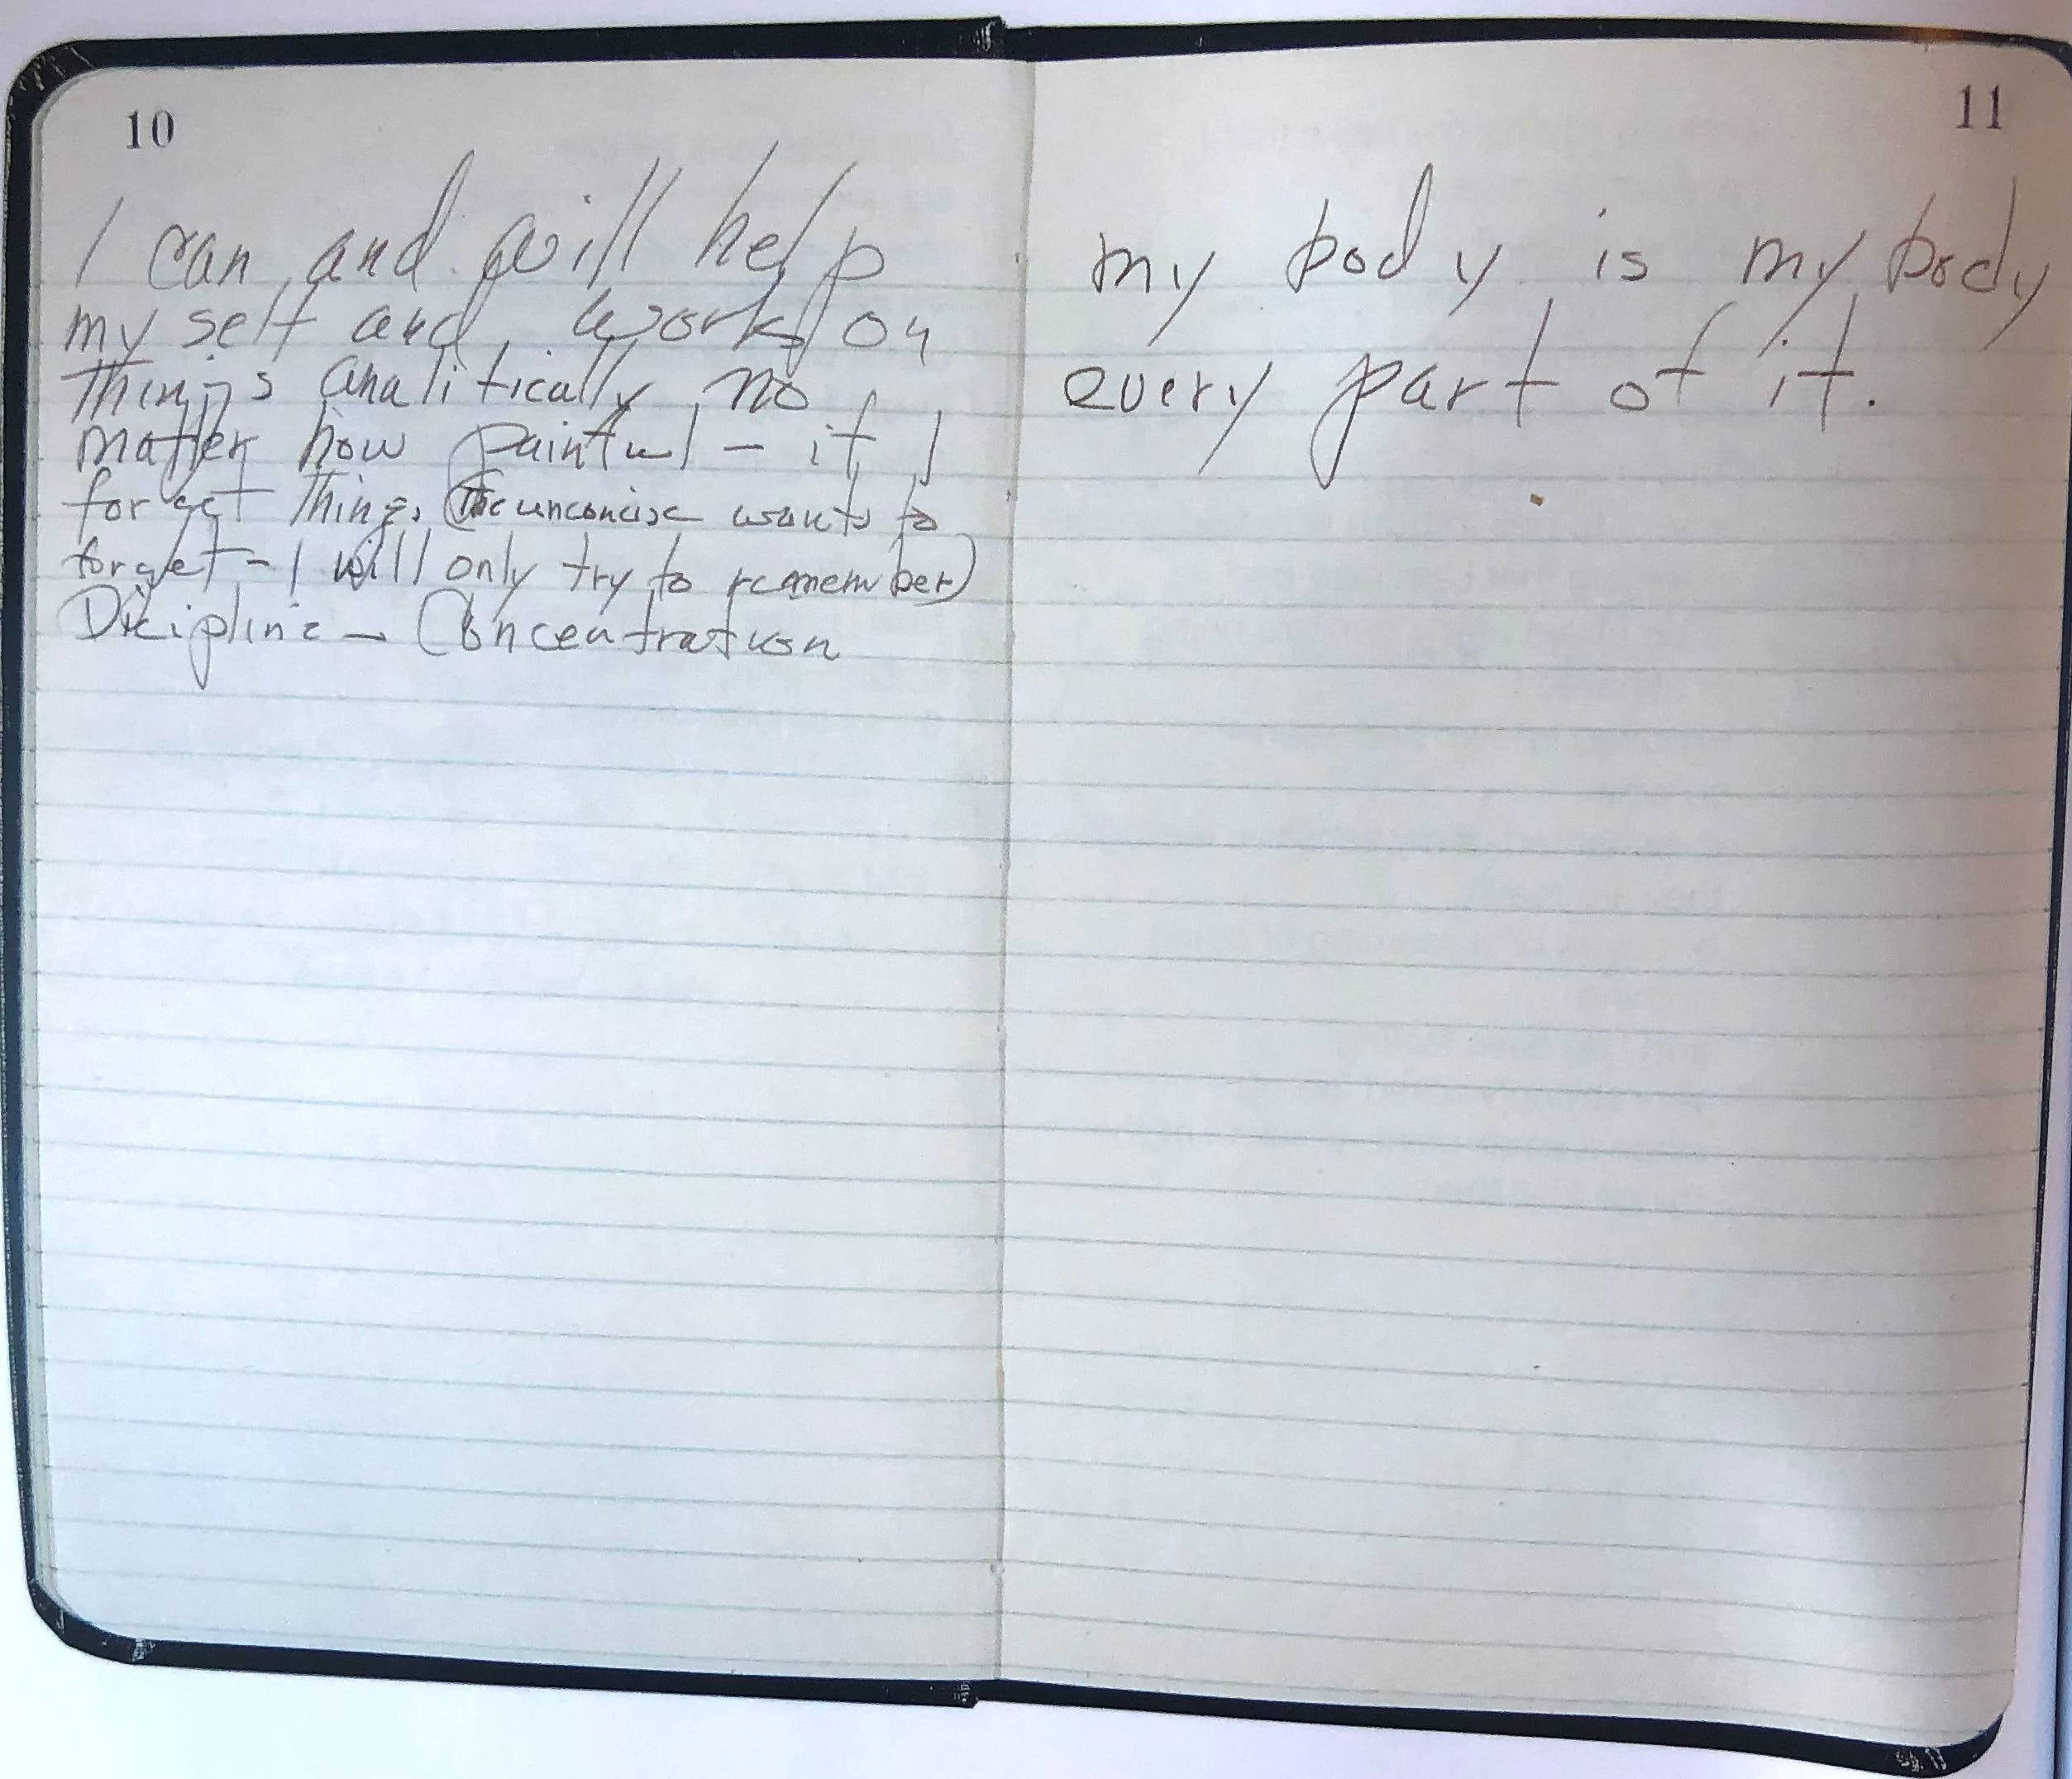 10
I can and will help
my self and work on
things analitically no
matter how painful – if I
forget things (the unconcise wants to
forget – I will only try to remember)
Dicipline – Concentration
11
my body is my body
every part of it.